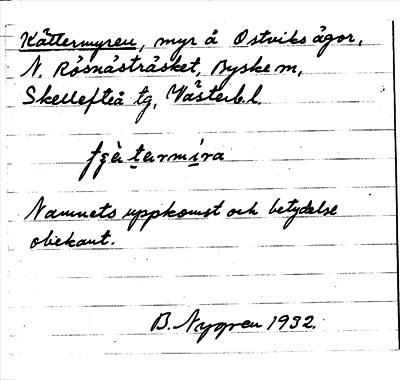 Kåttermyren, myr å Ostviks ägor,
N. Rösnästräsket, Byske m,
Skellefteå tg, Västerb.l.
Namnets uppkomst och betydelse
obekant.
B. Nygren 1932.